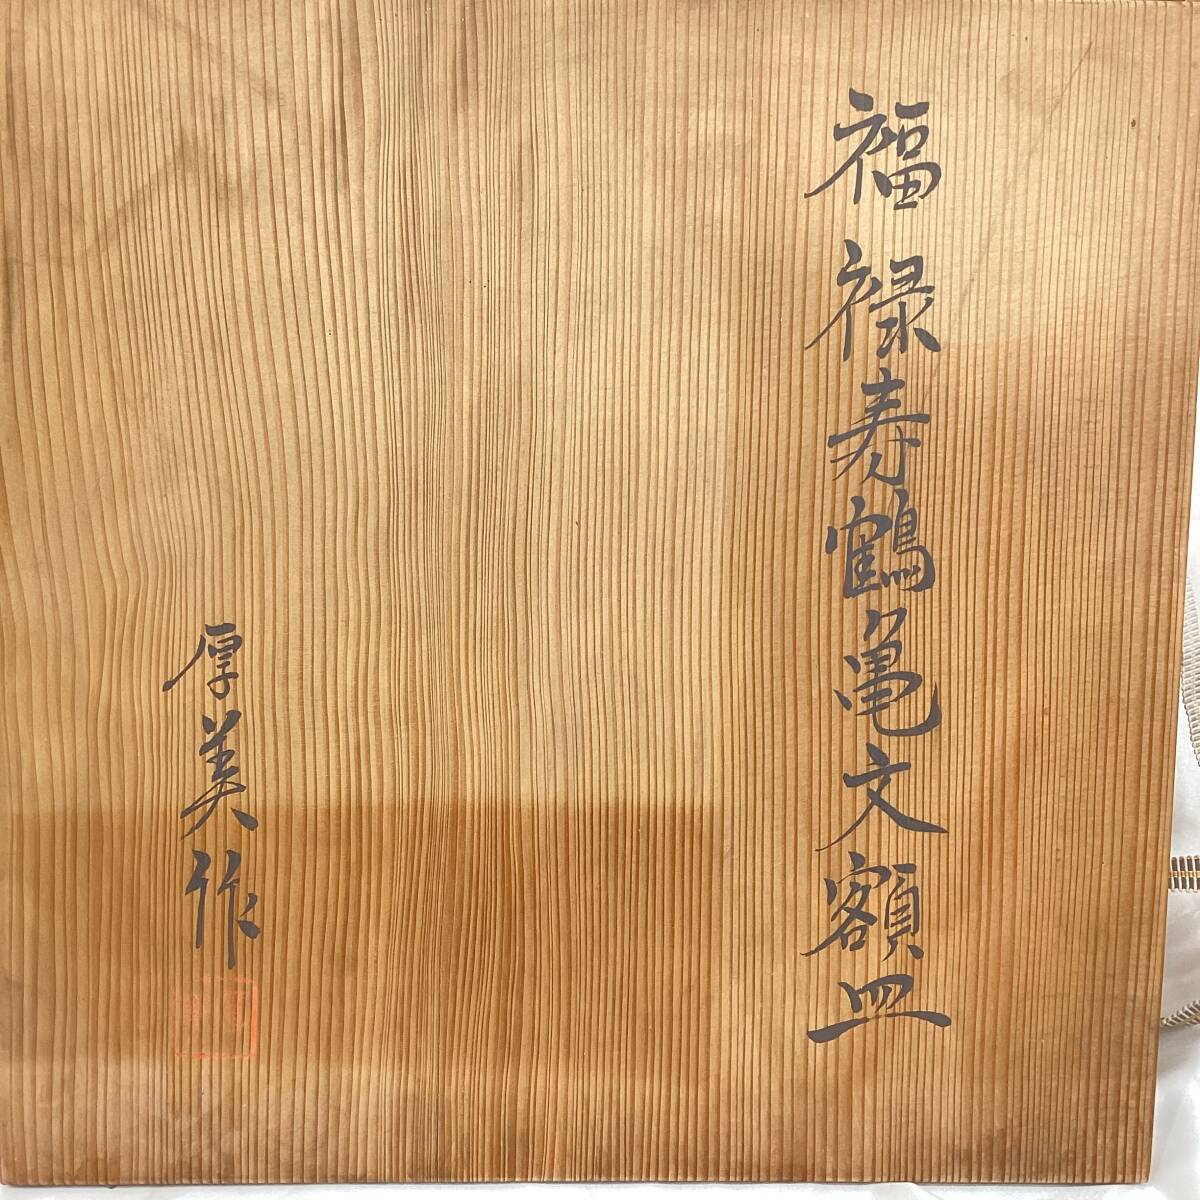 福禄寿鶴亀文額皿
厚美作